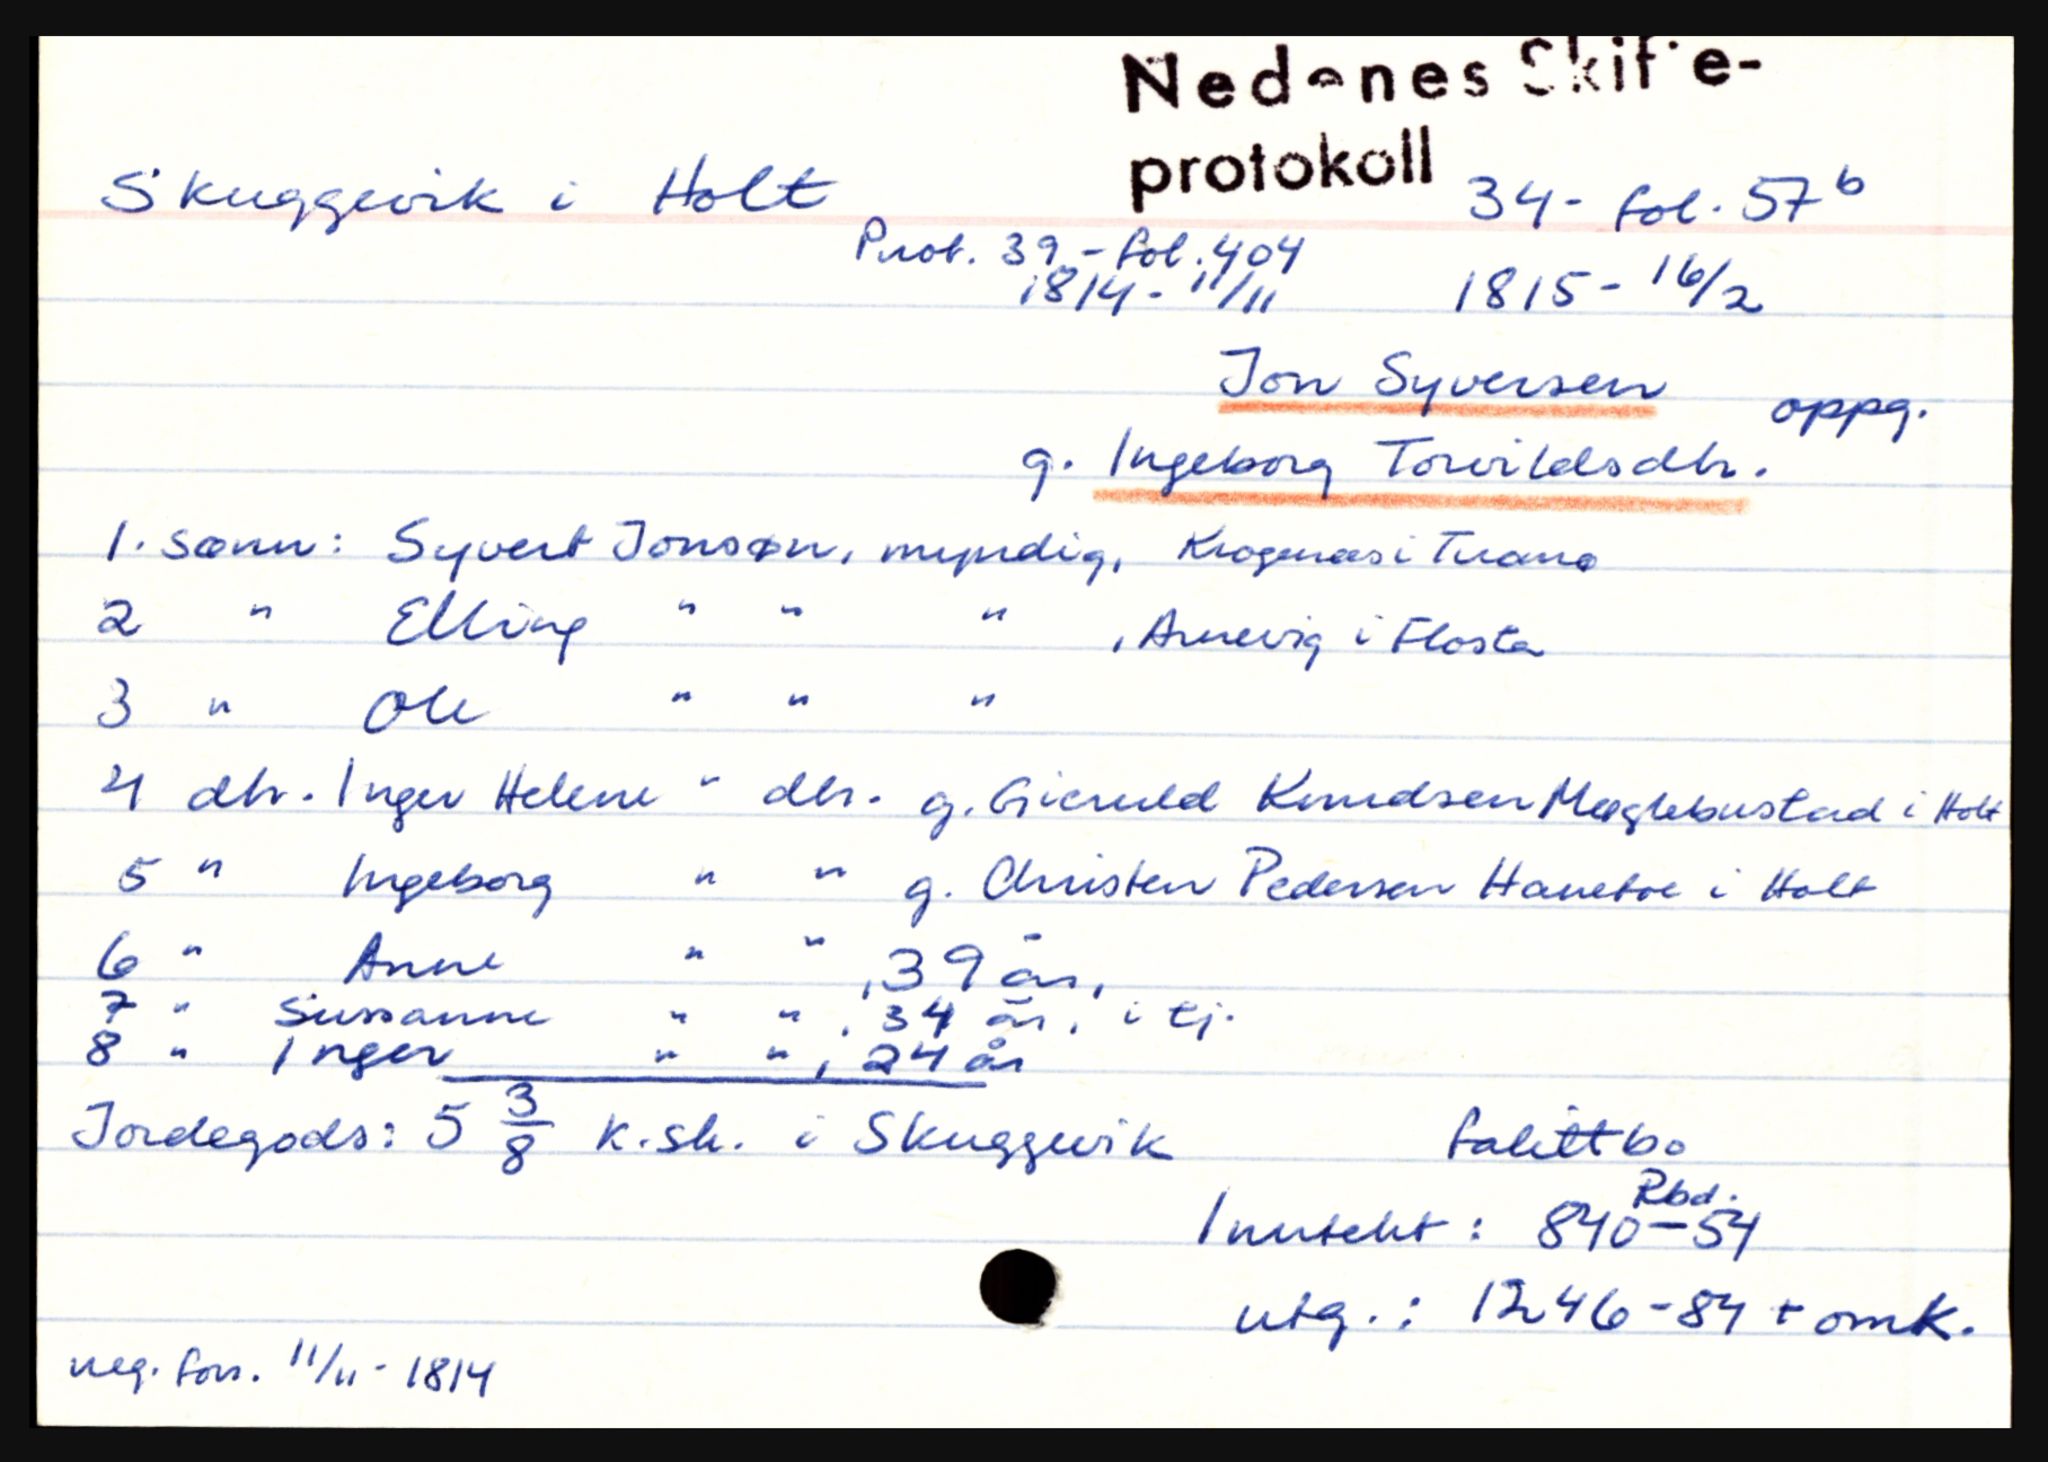 Nedenes Skifte-
protokoll
Skuggevik i Holt
34- fol. 57 b
Prot. 39 - fol. 404
1814 - 11/11
1815 - 16/2
Jon Syversen
oppg.
g. Ingeborg Torvildsdtr.
1. sønn: Syvert Jonsøn, myndig, Krogenæs i Tromø
2 " Elling " " " , Arnevig i Flosta
3 " Ole " " "
4 dtr. Inger Helene " dtr. g. Gieruld Knudsen Møglebustad i Holt
5 " Ingeborg " " g. Christen Pedersen Hanetoe i Holt
6 " Anne " " , 39 år,
7 " Sussanne " " , 34 år, i tj.
8 " Inger " " , 24 år
Jordegods: 5 3/8 k.sk. i Skuggevik
falittbo
Rbd.
Inntekt: 840-54
utg.: 1246-84 + omk.
reg. forr. 11/11 - 1814